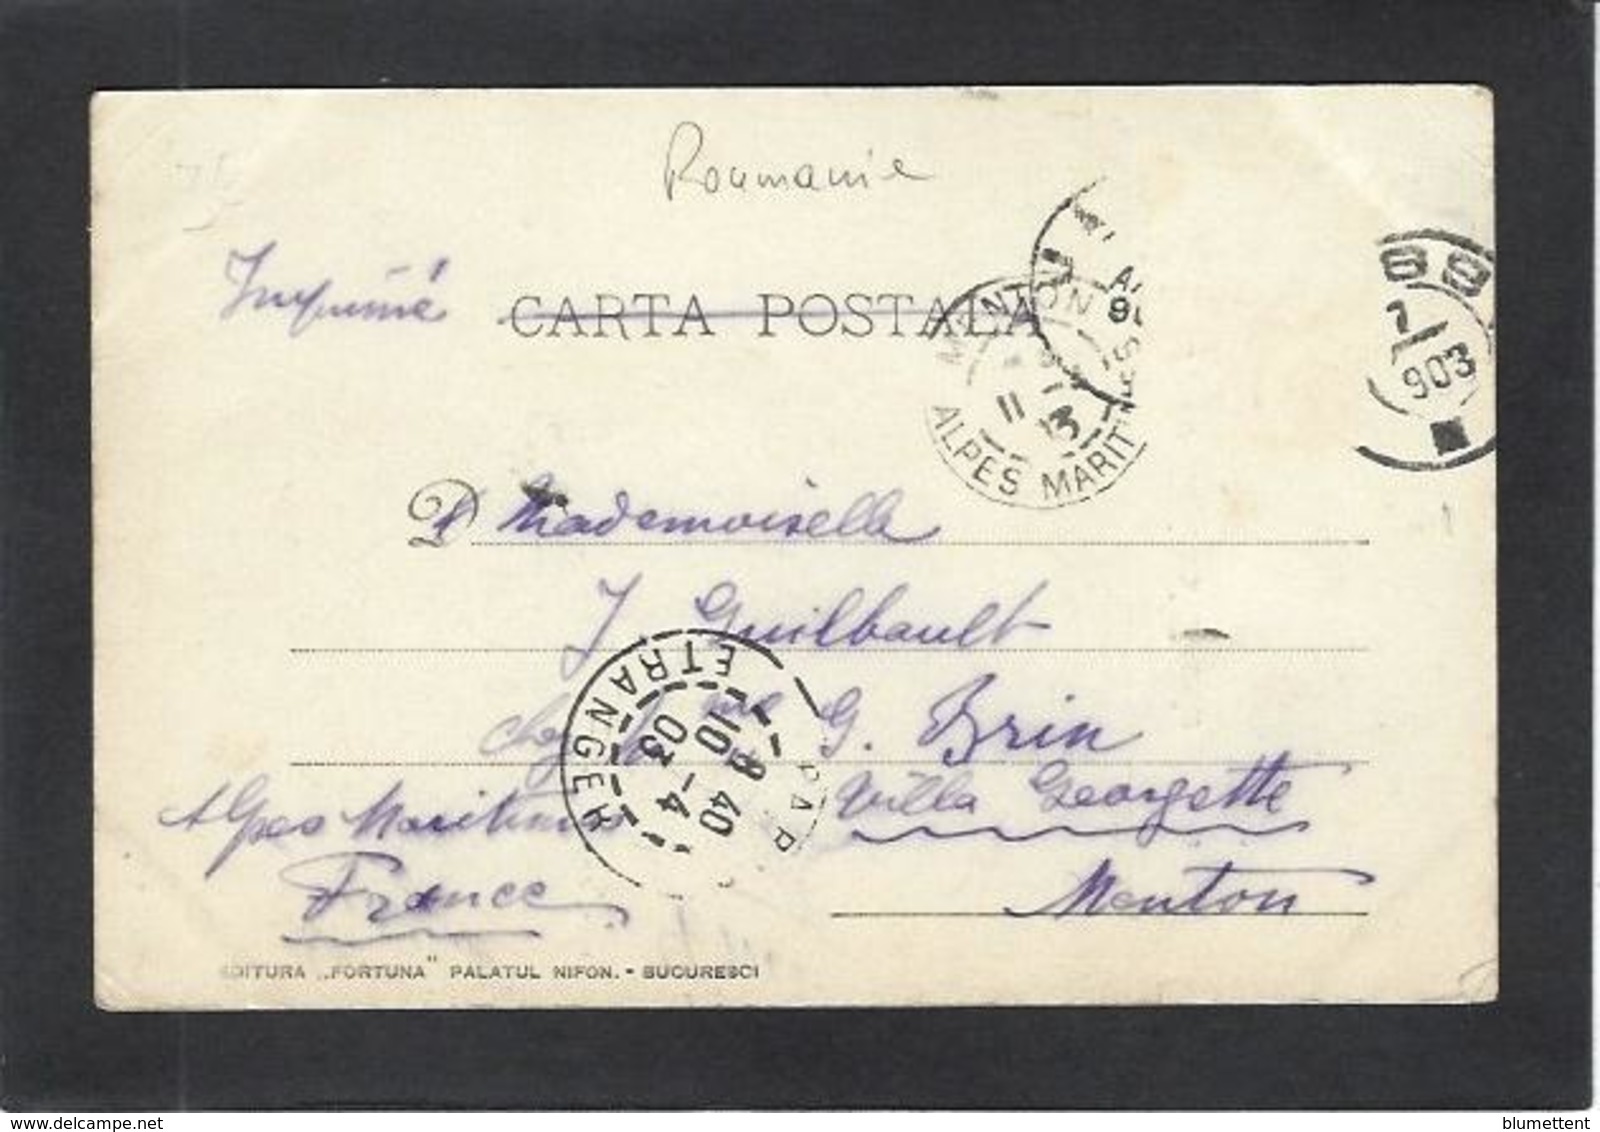 Roumanie
Imprimé
CARTA POSTALA
MENTON
ALPES MARIT
11
903
Mademoiselle
J Guilbault
chez Mme G. Brin
Villa Georgette
Alpes Maritimes
Menton
France
ETRANGER
PAR
10 40
8-4
03
EDITURA „FORTUNA" PALATUL NIFON. - BUCURESCI
blumettent